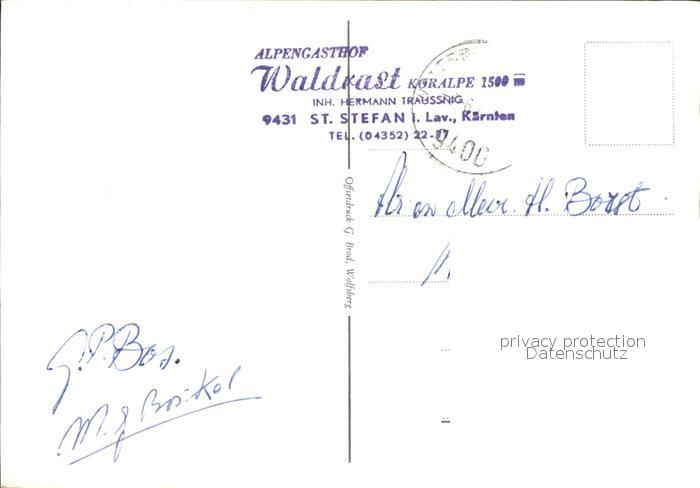 ALPENGASTHOF
Waldrast KORALPE 1500 m
INH. HERMANN TRAUSSNIG
9431 ST. STEFAN i. Lav., Kärnten
TEL. (04352) 22-
9400
Offsetdruck G. Brod, Wolfsberg
H. Borst
G.P. Bos.
M. J Bos-Kol
privacy protection
Datenschutz